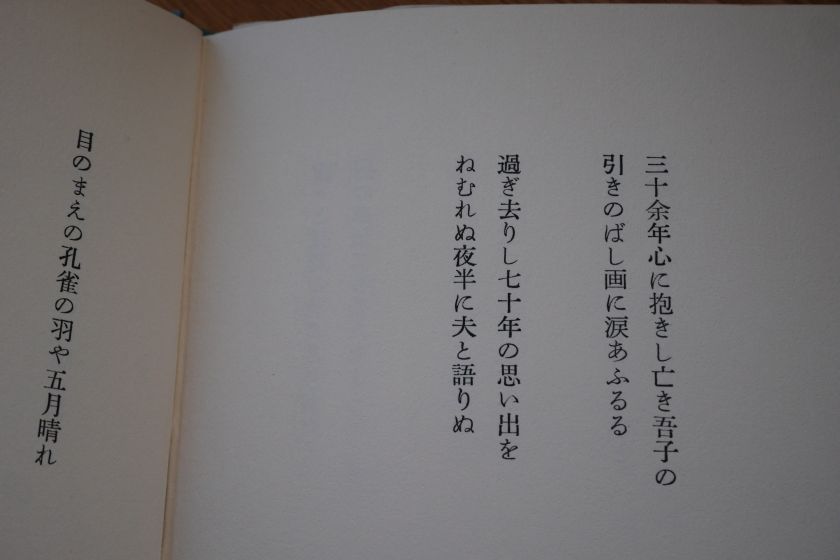 三十余年心に抱きし亡き吾子の
引きのばし画に涙あふるる
過ぎ去りし七十年の思い出を
ねむれぬ夜半に夫と語りぬ
目のまえの孔雀の羽や五月晴れ